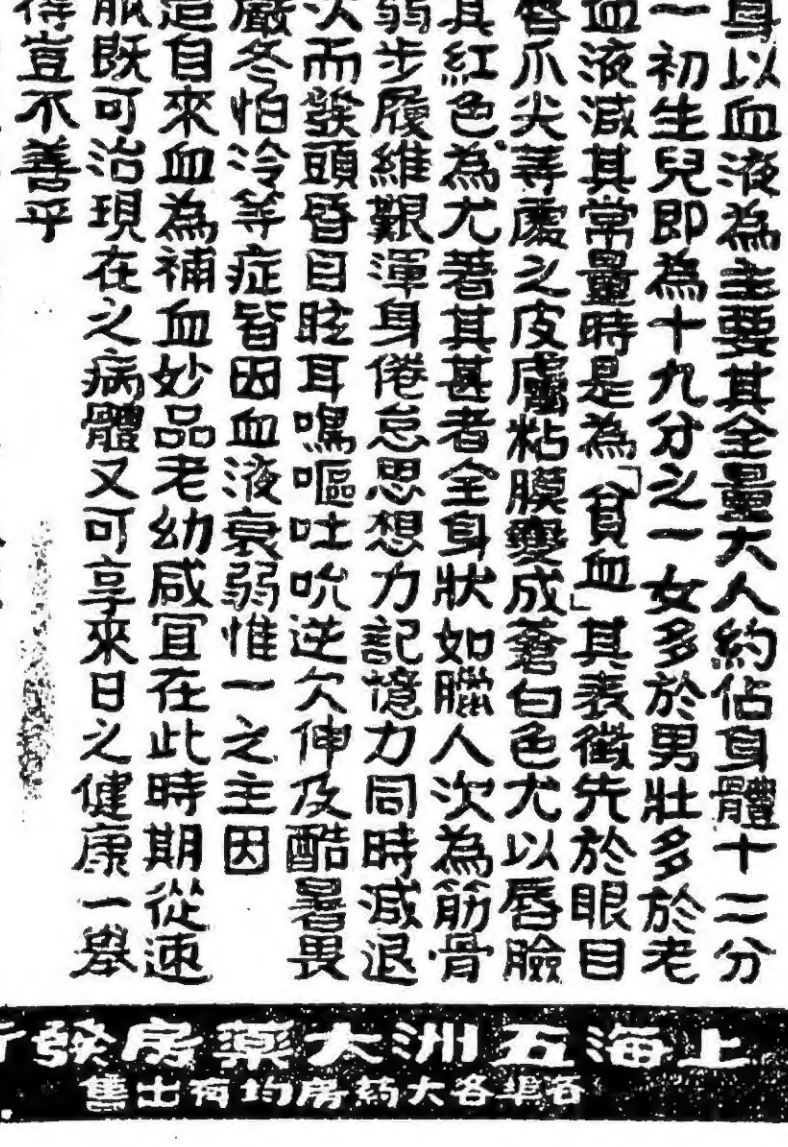 身以血液為主要其全量大人約佔身體十二分
一初生兒即為十九分之一女多於男壯多於老
血液減其常量時是為「貧血」其表徵先於眼目
唇爪尖等處之皮膚粘膜變成蒼白色尤以唇臉
其紅色為尤著其甚者全身狀如臘人次為筋骨
弱步履維艱渾身倦怠思想力記憶力同時減退
次而發頭昏目眩耳鳴嘔吐吮逆欠伸及酷暑畏
嚴冬怕冷等症皆因血液衰弱惟一之主因
造自來血為補血妙品老幼咸宜在此時期從速
服既可治現在之病體又可享來日之健康一舉
得豈不善乎
上海五洲大藥房發行
各埠各大药房均有出售